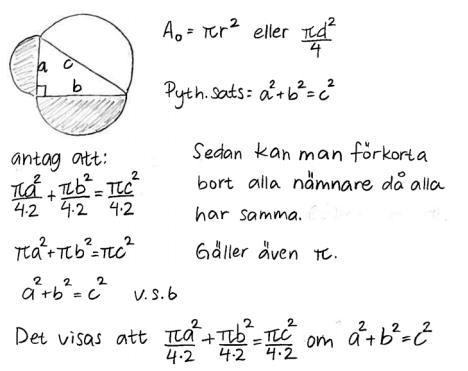 a
c
b
A₀ = πr² eller πd²/4
Pyth.sats: a²+b²=c²
antag att:
πa²/4·2 + πb²/4·2 = πc²/4·2
Sedan kan man förkorta
bort alla nämnare då alla
har samma.
πa²+πb²=πc²
Gäller även π.
a²+b²=c² v.s.b
Det visas att πa²/4·2 + πb²/4·2 = πc²/4·2 om a²+b²=c²